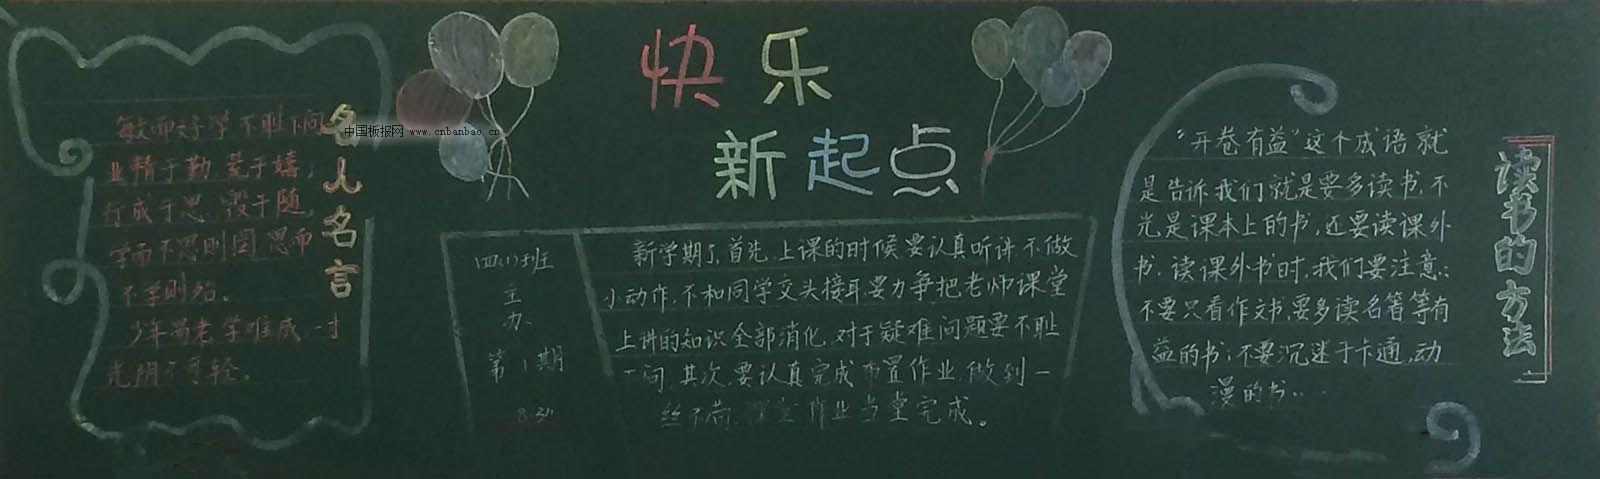 快乐
新起点
名人名言
敏而好学不耻下问
业精于勤,荒于嬉,
行成于思,毁于随,
学而不思则罔,思而
不学则殆。
少年易老学难成,一寸
光阴不可轻。
中国板报网 www.cnbanbao.cn
四(1)班
主
办
第1期
8.31
新学期了,首先,上课的时候要认真听讲不做
小动作,不和同学交头接耳,要力争把老师课堂
上讲的知识全部消化,对于疑难问题要不耻
下问,其次,要认真完成布置作业,做到一
丝不苟,课堂作业当堂完成。
读书的方法
“开卷有益”这个成语就
是告诉我们就是要多读书,不
光是课本上的书,还要读课外
书.读课外书时,我们要注意:
不要只看作文书,要多读名著等有
益的书;不要沉迷于卡通,动
漫的书……